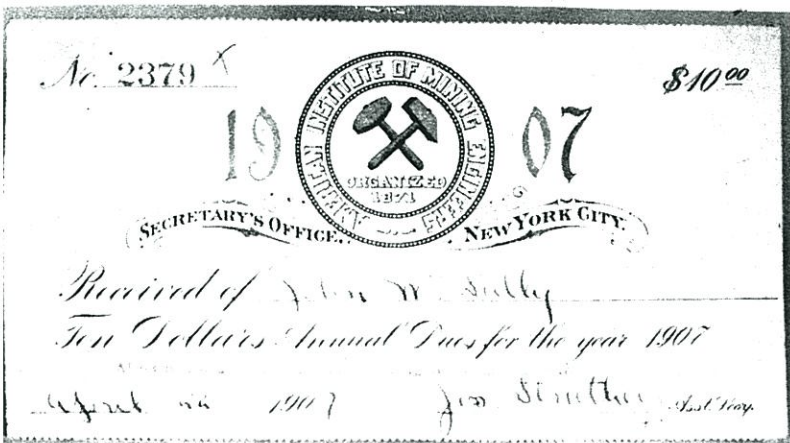 No. 2379 X
$10 00
19 07
AMERICAN INSTITUTE OF MINING ENGINEERS
ORGANIZED
1871
SECRETARY'S OFFICE, NEW YORK CITY.
Received of John W. Sully
Ten Dollars Annual Dues for the year 1907
April 1907 Jos Struthers Asst. Secy.